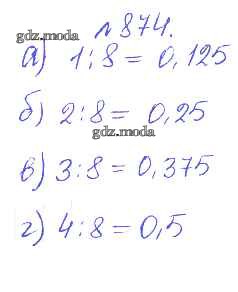 gdz.moda
№874.
а) 1:8 = 0,125
б) 2:8 = 0,25
gdz.moda
в) 3:8 = 0,375
г) 4:8 = 0,5